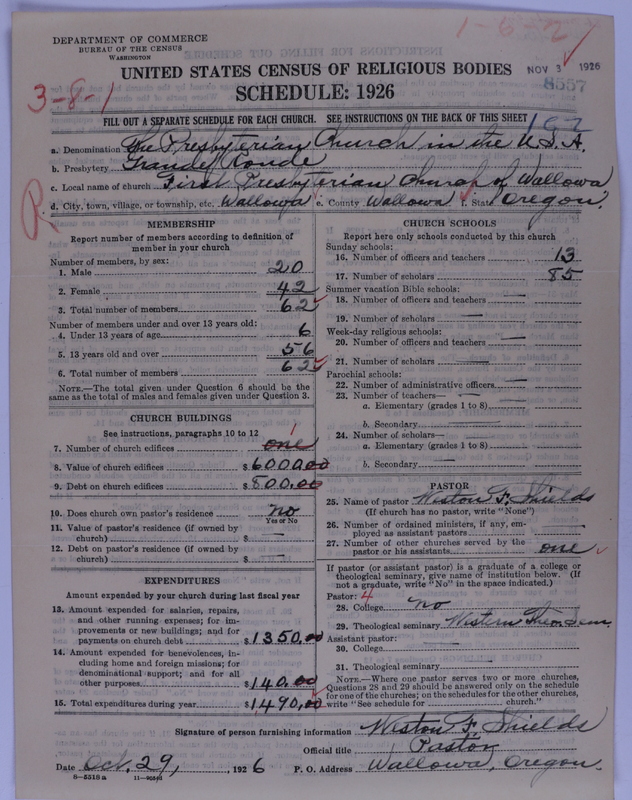 DEPARTMENT OF COMMERCE
BUREAU OF THE CENSUS
WASHINGTON
1-6-27
NOV 3 1926
8557
UNITED STATES CENSUS OF RELIGIOUS BODIES
SCHEDULE: 1926
3-8-1
FILL OUT A SEPARATE SCHEDULE FOR EACH CHURCH. SEE INSTRUCTIONS ON THE BACK OF THIS SHEET
a. Denomination The Presbyterian Church in the U.S.A.
b. Presbytery Grande Ronde
c. Local name of church First Presbyterian Church of Wallowa
d. City, town, village, or township, etc. Wallowa e. County Wallowa f. State Oregon.
R
MEMBERSHIP
Report number of members according to definition of
member in your church
Number of members, by sex:
1. Male 20
2. Female 42
3. Total number of members 62
Number of members under and over 13 years old:
4. Under 13 years of age 6
5. 13 years old and over 56
6. Total number of members 62
NOTE.—The total given under Question 6 should be
same as the total of males and females given under Question 3.
CHURCH BUILDINGS
See instructions, paragraphs 10 to 12
7. Number of church edifices one 1
8. Value of church edifices $ 6000.00
9. Debt on church edifices $ 800.00
10. Does church own pastor's residence no
Yes or No
11. Value of pastor's residence (if owned by
church) $ —
12. Debt on pastor's residence (if owned by
church) $ —
EXPENDITURES
Amount expended by your church during last fiscal year
13. Amount expended for salaries, repairs,
and other running expenses; for im-
provements or new buildings; and for
payments on church debt $ 1350.00
14. Amount expended for benevolences, in-
cluding home and foreign missions; for
denominational support; and for all
other purposes $ 140.00
15. Total expenditures during year $ 1490.00
CHURCH SCHOOLS
Report here only schools conducted by this church
Sunday schools:
16. Number of officers and teachers 13
17. Number of scholars 85
Summer vacation Bible schools:
18. Number of officers and teachers —
19. Number of scholars —
Week-day religious schools:
20. Number of officers and teachers —
21. Number of scholars —
Parochial schools:
22. Number of administrative officers —
23. Number of teachers— —
a. Elementary (grades 1 to 8) —
b. Secondary —
24. Number of scholars— —
a. Elementary (grades 1 to 8) —
b. Secondary —
PASTOR
25. Name of pastor Weston F. Shields
(If church has no pastor, write "None")
26. Number of ordained ministers, if any, em-
ployed as assistant pastors —
27. Number of other churches served by the
pastor or his assistants one
If pastor (or assistant pastor) is a graduate of a college or
theological seminary, give name of institution below. (If
not a graduate, write "No" in the space indicated.)
Pastor: 4
28. College no
29. Theological seminary Western Theo. Sem.
Assistant pastor:
30. College —
31. Theological seminary —
NOTE.—Where one pastor serves two or more churches,
Questions 28 and 29 should be answered only on the schedule
for one of the churches; on the schedules for the other churches,
write "See schedule for church."
Signature of person furnishing information Weston F. Shields
Official title Pastor
Date Oct. 29, 1926 P. O. Address Wallowa, Oregon.
8—5518 a